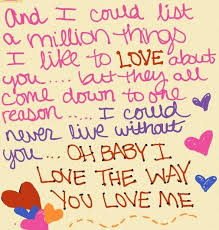 And I could list
a million things
I like to LOVE about
you..... but they all
come down to one
reason ..... I could
never live without
you... OH BABY I
LOVE THE WAY
YOU LOVE ME